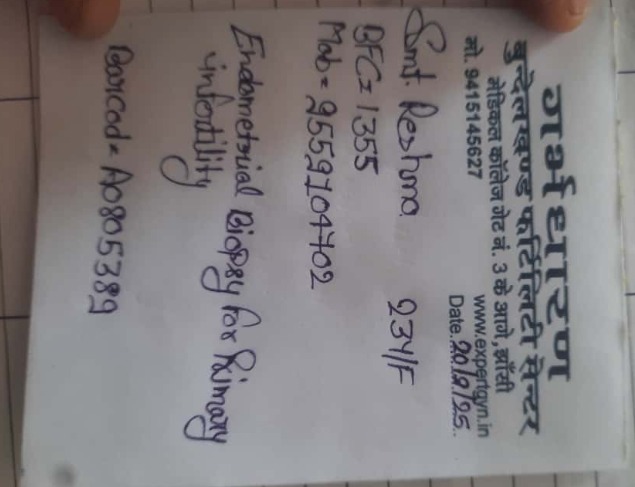 गर्भधारण
बुन्देलखण्ड फर्टिलिटी सेन्टर
मेडिकल कॉलेज गेट नं. 3 के आगे, झाँसी
मो. 9415145627 www.expertgyn.in
Date. 20/9/25
Smt. Reshma 23Y/F
BFC= 1355
Mob= 9559104702
Endometrial Biopsy for Primary
infertility
Barcod= A0805389